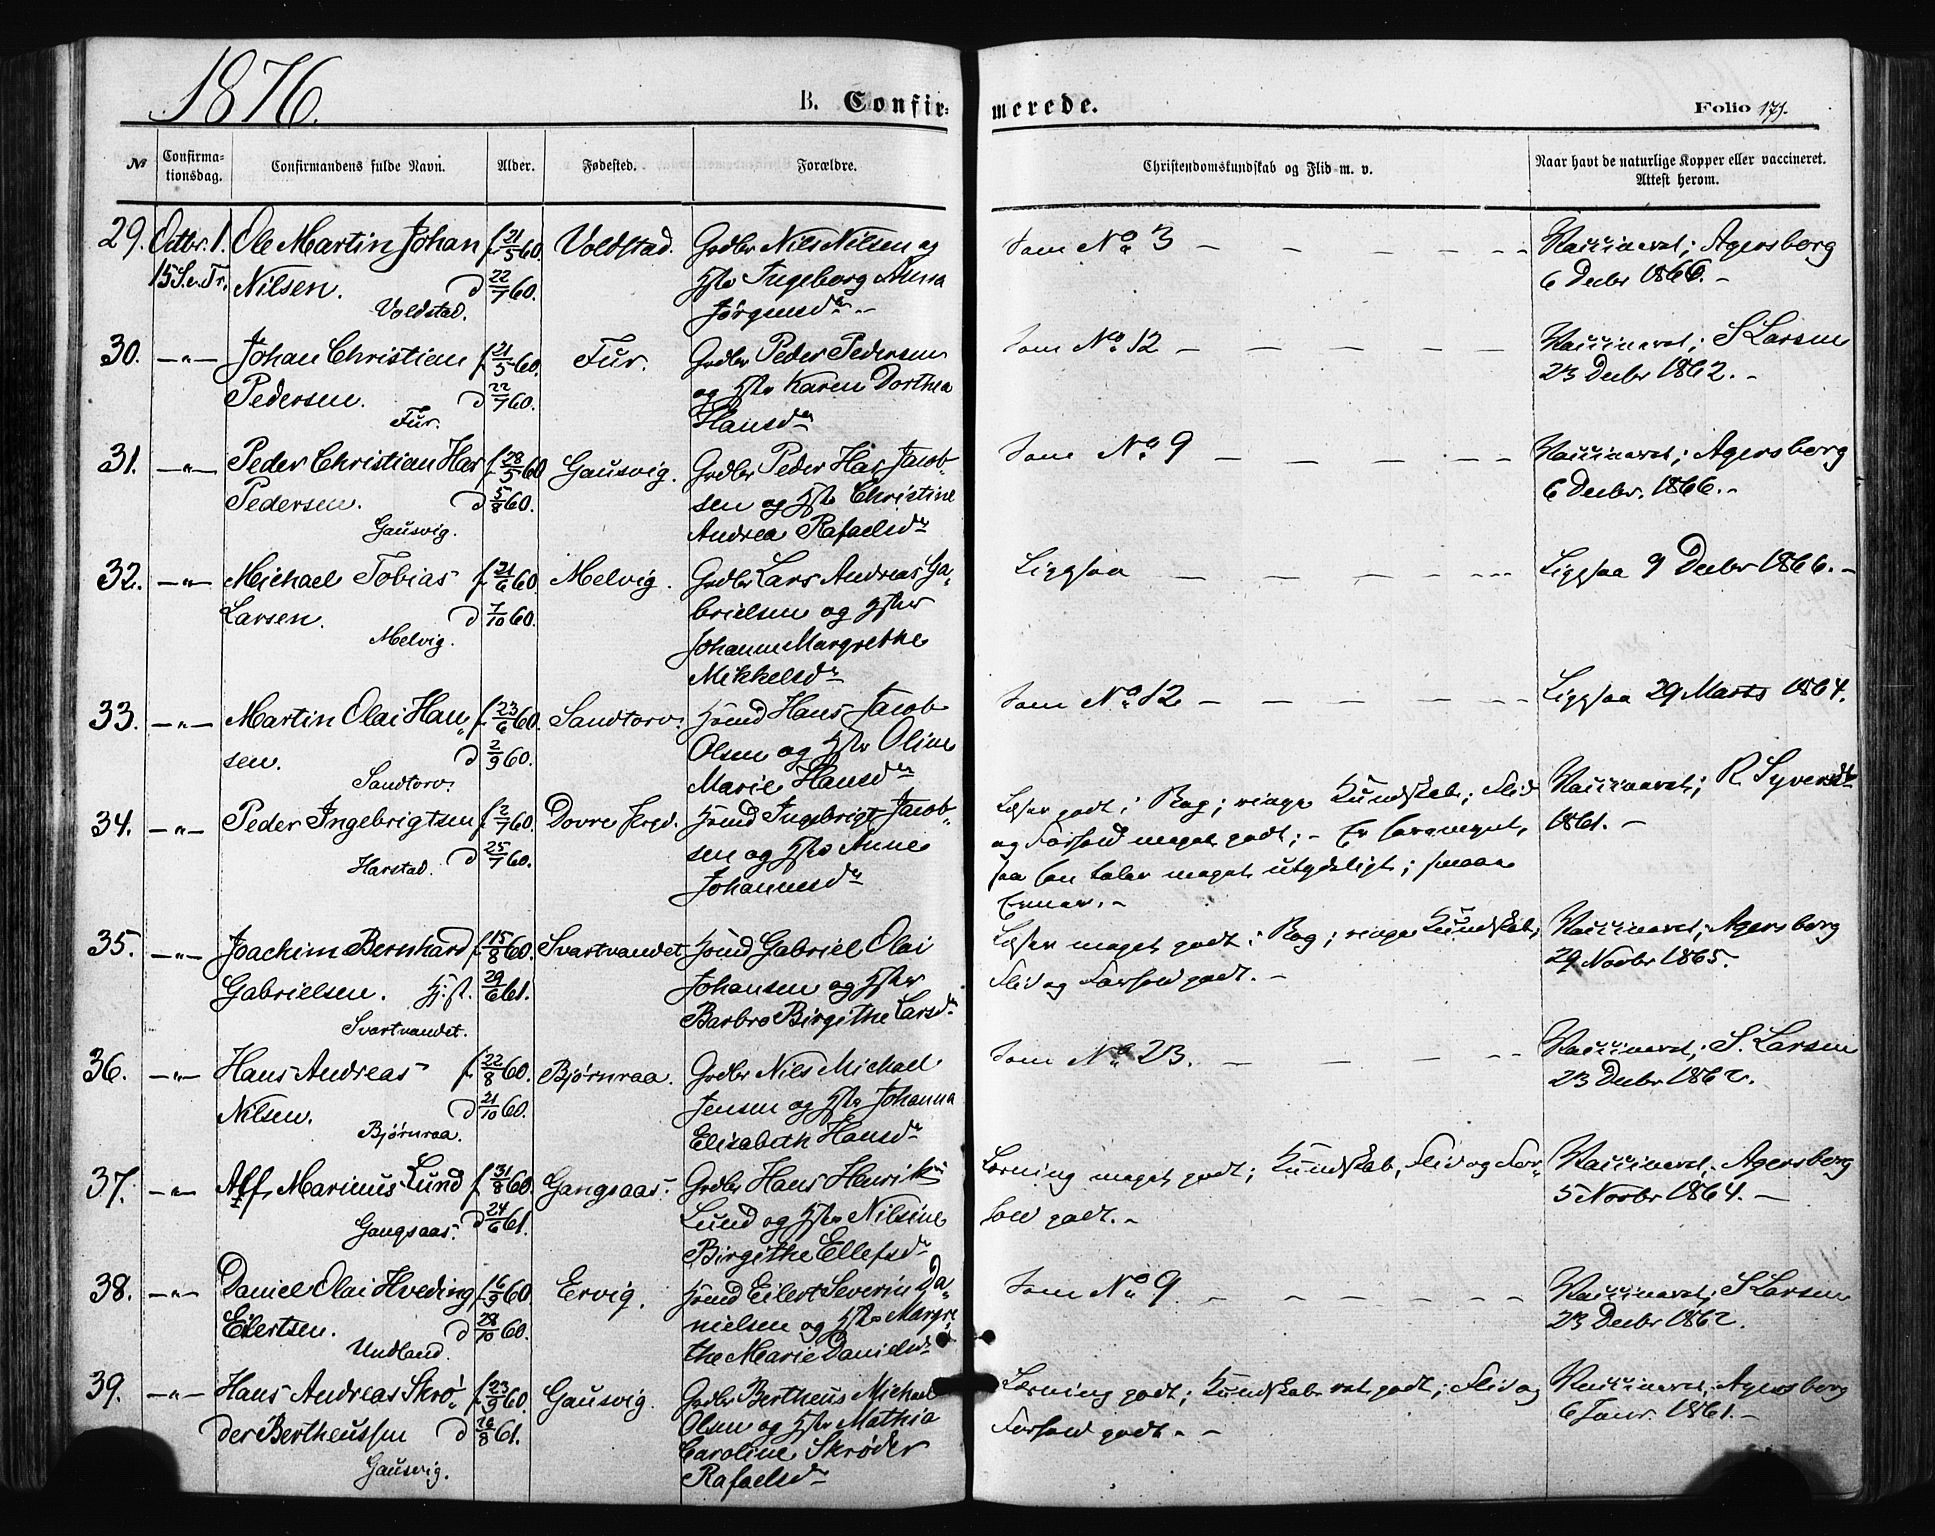 1876.
B. Confir-
merede.
Folio 171.
No
Confirma-
tionsdag.
Confirmandens fulde Navn.
Alder.
Fødested.
Forældre.
Christendomskundskab og Flid m. v.
Naar havt de naturlige Kopper eller vaccineret.
Attest herom.
29. Octbr. 1. Ole Martin Johan f. 21/5 60. Voldstad. Grdbr Nils Nilsen og Som No 3 — — — — — Vaccineret; Agersborg
15 S. e. Tr. Nilsen. d 22/7 60. Hstr Ingeborg Anna 6 Decbr 1866. –
Voldstad. Jørgensdr. –
30. –„– Johan Christian f. 21/5 60. Fur. Grdbr Peder Pedersen Som No 12 — — — — — Vaccineret; S Larsen
Pedersen. d 22/7 60. og Hstr Karen Dorthea 23 Decbr 1862. –
Fur. Hansdr
31. –„– Peder Christian Har f. 28/5 60 Gausvig. Grdbr Peder Har Jacob- Som No 9 — — — — — Vaccineret; Agersborg
Pedersen. d 5/8 60. sen og Hstr Christine 6 Decbr. 1866. –
Gausvig. Andrea Rafaelsdr
32. –„– Michael Tobias f. 21/6 60. Melvig. Grdbr Lars Andreas Ga- Ligesaa — — — — Ligesaa 9 Decbr 1866. –
Larsen. d 7/10 60. brielsen og Hstr
Melvig. Johanne Margrethe
Mikkelsdr
33. –„– Martin Olai Han- f. 23/6 60. Sandtorv. Hsmd Hans Jacob Som No 12 — — — — — Ligesaa 29 Marts 1864.
sen. d 2/9 60. Olsen og Hstr Oline
Sandtorv. Marie Hansdr
34. –„– Peder Ingebrigtsen f. 2/7 60. Dovre Prgd. Hsmd Ingebrigt Jacob- Læser godt i Bog; ringe Kundskab; Flid Vaccineret; R Syverdt
Harstad. d 25/7 60. sen og Hstr Anne og Forhold meget godt; – Er 1861. –
Johannesdr saa han taler meget utydeligt; smaa
Evner. –
35. –„– Joachim Bernhard f. 15/8 60. Svartvandet Hsmd Gabriel Olai Læser meget godt i Bog; ringe Kundskab; Vaccineret; Agersborg
Gabrielsen. Hj. st. 29/6 61. Johansen og Hstr Flid og Forhold godt. – 29 Novbr 1865.
Svartvandet. Barbro Birgithe Larsdr
36. –„– Hans Andreas f. 22/8 60. Bjørnraa. Grdbr Nils Michael Som No 23. — — — — Vaccineret; S. Larsen
Nilsen. d 21/10 60. Jensen og Hstr Johanna 23 Decbr 1862.
Bjørnraa. Elisabeth Hansdr
37. –„– Alf Marinus Lund f. 31/8 60. Gangsaas. Grdbr Hans Henrik Læsning meget godt; Kundskab, Flid og For- Vaccineret; Agersborg
Gangsaas. d 24/6 61. Lund og Hstr Nilsine hold godt. – 5 Novbr 1864. –
Birgithe Ellefsdr
38. –„– Daniel Olai Hveding f. 16/9 60. Ervig. Hsmd Eilert Severin Da- Som No 9 — — — — — Vaccineret; S Larsen
Eilertsen. d 28/10 60. nielsen og Hstr Margre- 23 Decbr 1862.
Undland. the Marie Danielsdr
39. –„– Hans Andreas Skrø- f. 23/9 60. Gausvig. Grdbr Bertheus Michael Læsning godt; Kundskab vel godt; Flid og Vaccineret; Agersborg
der Bertheussen d 26/8 61. Olsen og Hstr Mathia Forhold godt. – – 6 Janr. 1861. –
Gausvig. Caroline Skrøder
Rafaelsdr